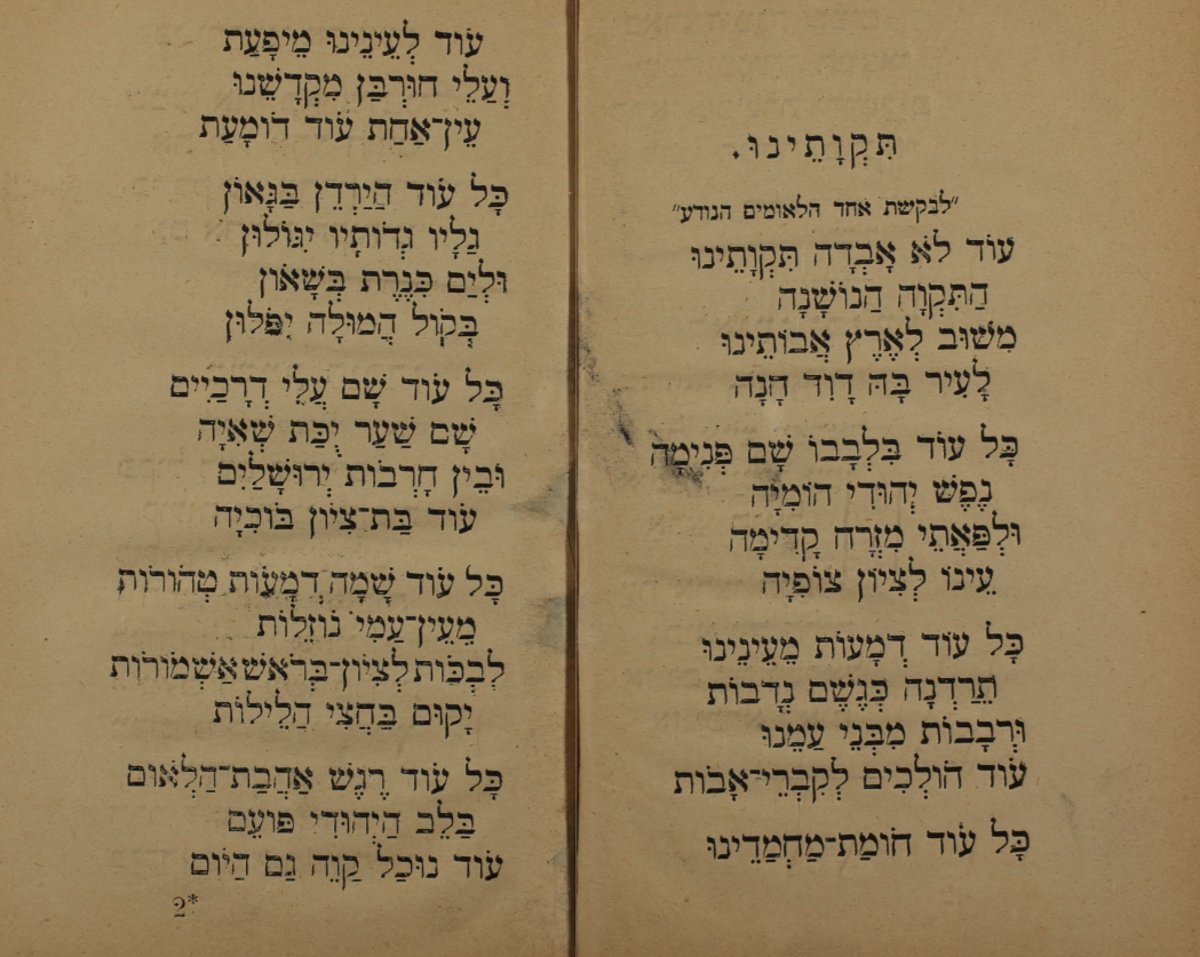 תִּקְוָתֵינוּ.
״לבקשת אחד הלאומים הנודע״
עוֹד לֹא אָבְדָה תִּקְוָתֵינוּ
הַתִּקְוָה הַנוֹשָׁנָה
מִשׁוּב לְאֶרֶץ אֲבוֹתֵינוּ
לָעִיר בָּהּ דָוִד חָנָה
כָּל עוֹד בִּלְבָבוֹ שָׁם פְּנִימָה
נֶפֶשׁ יְהוּדִי הוֹמִיָה
וּלְפַאֲתֵי מִזְרָח קָדִימָה
עֵינוֹ לְצִיוֹן צוֹפִיָה
כָּל עוֹד דְמָעוֹת מֵעֵינֵינוּ
תֵּרַדְנָה כְּגֶשֶׁם נְדָבוֹת
וּרְבָבוֹת מִבְּנֵי עַמֵנוּ
עוֹד הוֹלְכִים לְקִבְרֵי־אָבוֹת
כָּל עוֹד חוֹמַת־מַחְמַדֵינוּ
עוֹד לְעֵינֵינוּ מֵיפָעַת
וְעַלֵי חוּרְבַּן מִקְדָשֵׁנוּ
עֵין־אַחַת עוֹד דוֹמָעַת
כָּל עוֹד הַיַרְדֵן בַּגָאוֹן
גַלָיו גְדוֹתָיו יִגוֹלוּן
וּלְיַם כִּנֶרֶת בְּשָׁאוֹן
בְּקוֹל הֲמוּלָה יִפֹּלוּן
כָּל עוֹד שָׁם עֲלֵי דְרָכַיִים
שָׁם שַׁעַר יֻכַּת שְׁאִיָה
וּבֵין חָרְבוֹת יְרוּשָׁלַיִם
עוֹד בַּת־צִיוֹן בּוֹכִיָה
כָּל עוֹד שָׁמָה דְמָעוֹת טְהוֹרוֹת
מֵעֵין־עַמִי נוֹזְלוֹת
לִבְכּוֹת לְצִיוֹן־בְּרֹאשׁ אַשְׁמוֹרוֹת
יָקוּם בַּחֲצִי הַלֵילוֹת
כָּל עוֹד רֶגֶשׁ אַהֲבַת־הַלְאוֹם
בַּלֵב הַיְהוּדִי פּוֹעֵם
עוֹד נוּכַל קַוֵה גַם הַיוֹם
2*